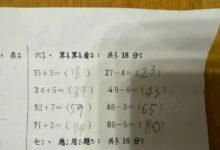 在
六、算算看：共18分
15+3=(18) 27-4=(23)
34+5=(39) 49-6=(43)
52+7=(59) 68-3=(65)
71+3=(74) 86-6=(80)
七、應用題：共16分